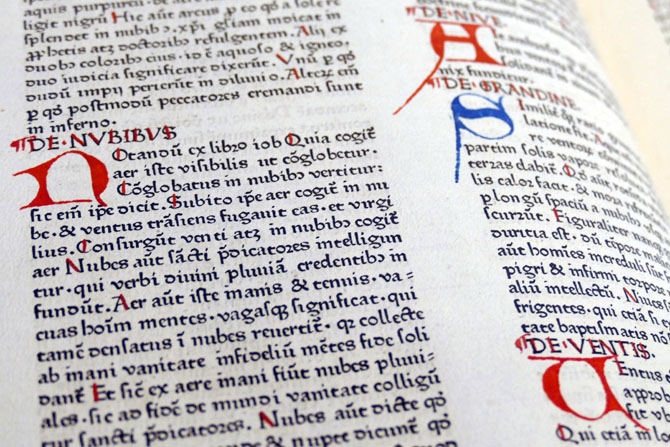 ligit nigrū Hic aūt arcus p̱ eo qđ a solere
splendet in nubibꝫ·xp̄i gl̄iam indicat in
ꝓphetis atꝫ doctoribꝫ refulgentem. Alij ex
duobꝫ coloribꝫ eius·id ē aquoso & igneo·
duo iudicia significare dixerūt. Vnū ꝑ qđ
dudū impij perierūt in diluuio. Alterū
ꝑ qđ postmodū peccatores cremandi sunt
in inferno.
¶DE·NVBIBVS
NOtandū ex libro iob Quia cogiť
aer iste visibilis ut cōglobetur·
Cōglobatus in nubibꝫ vertitur:
sic em̄ ip̄e dicit. Subito ip̄e aer cogiť in nu
be·& ventus trāsiens fugauit eas·et virgi
lius. Consurgūt venti atꝫ in nubibꝫ cogiť
aer Nubes aūt sācti p̄dicatores intelligun
tur·qui verbi diuini pluuiā credentibꝫ in
fundūt. Aer aūt iste inanis & tenuis·va⸗
cuas hoīm mentes·vagasqꝫ significat·qui
tamē densatus ī nubes reuertiť·qꝫ collecte
ab inani vanitate infideliū mētes fide soli
danť Et sic ex aere inani fiūt nubes pluui⸗
ales·sic ad fidē de mundi vanitate colligū
tur sancti p̄dicatores. Nubes aūt dicte qđ
DE·NIVE
nix funditur.
¶DE·GRANDINE
SImili
re ventox
partim solis vapor
terras dabiť.
lis calor facit·& mora
ꝑ longū spaciū a nubibꝫ
scurzūt. Figuraliter
duritia est·dū tēpore
aūt homīes increduli
pigri & infirmi
aliū intellectū.
frigentes·qui etiā
tate baptismatis
¶DE·VENTIS·
VEntus
appro
sic vb
Qui etiā